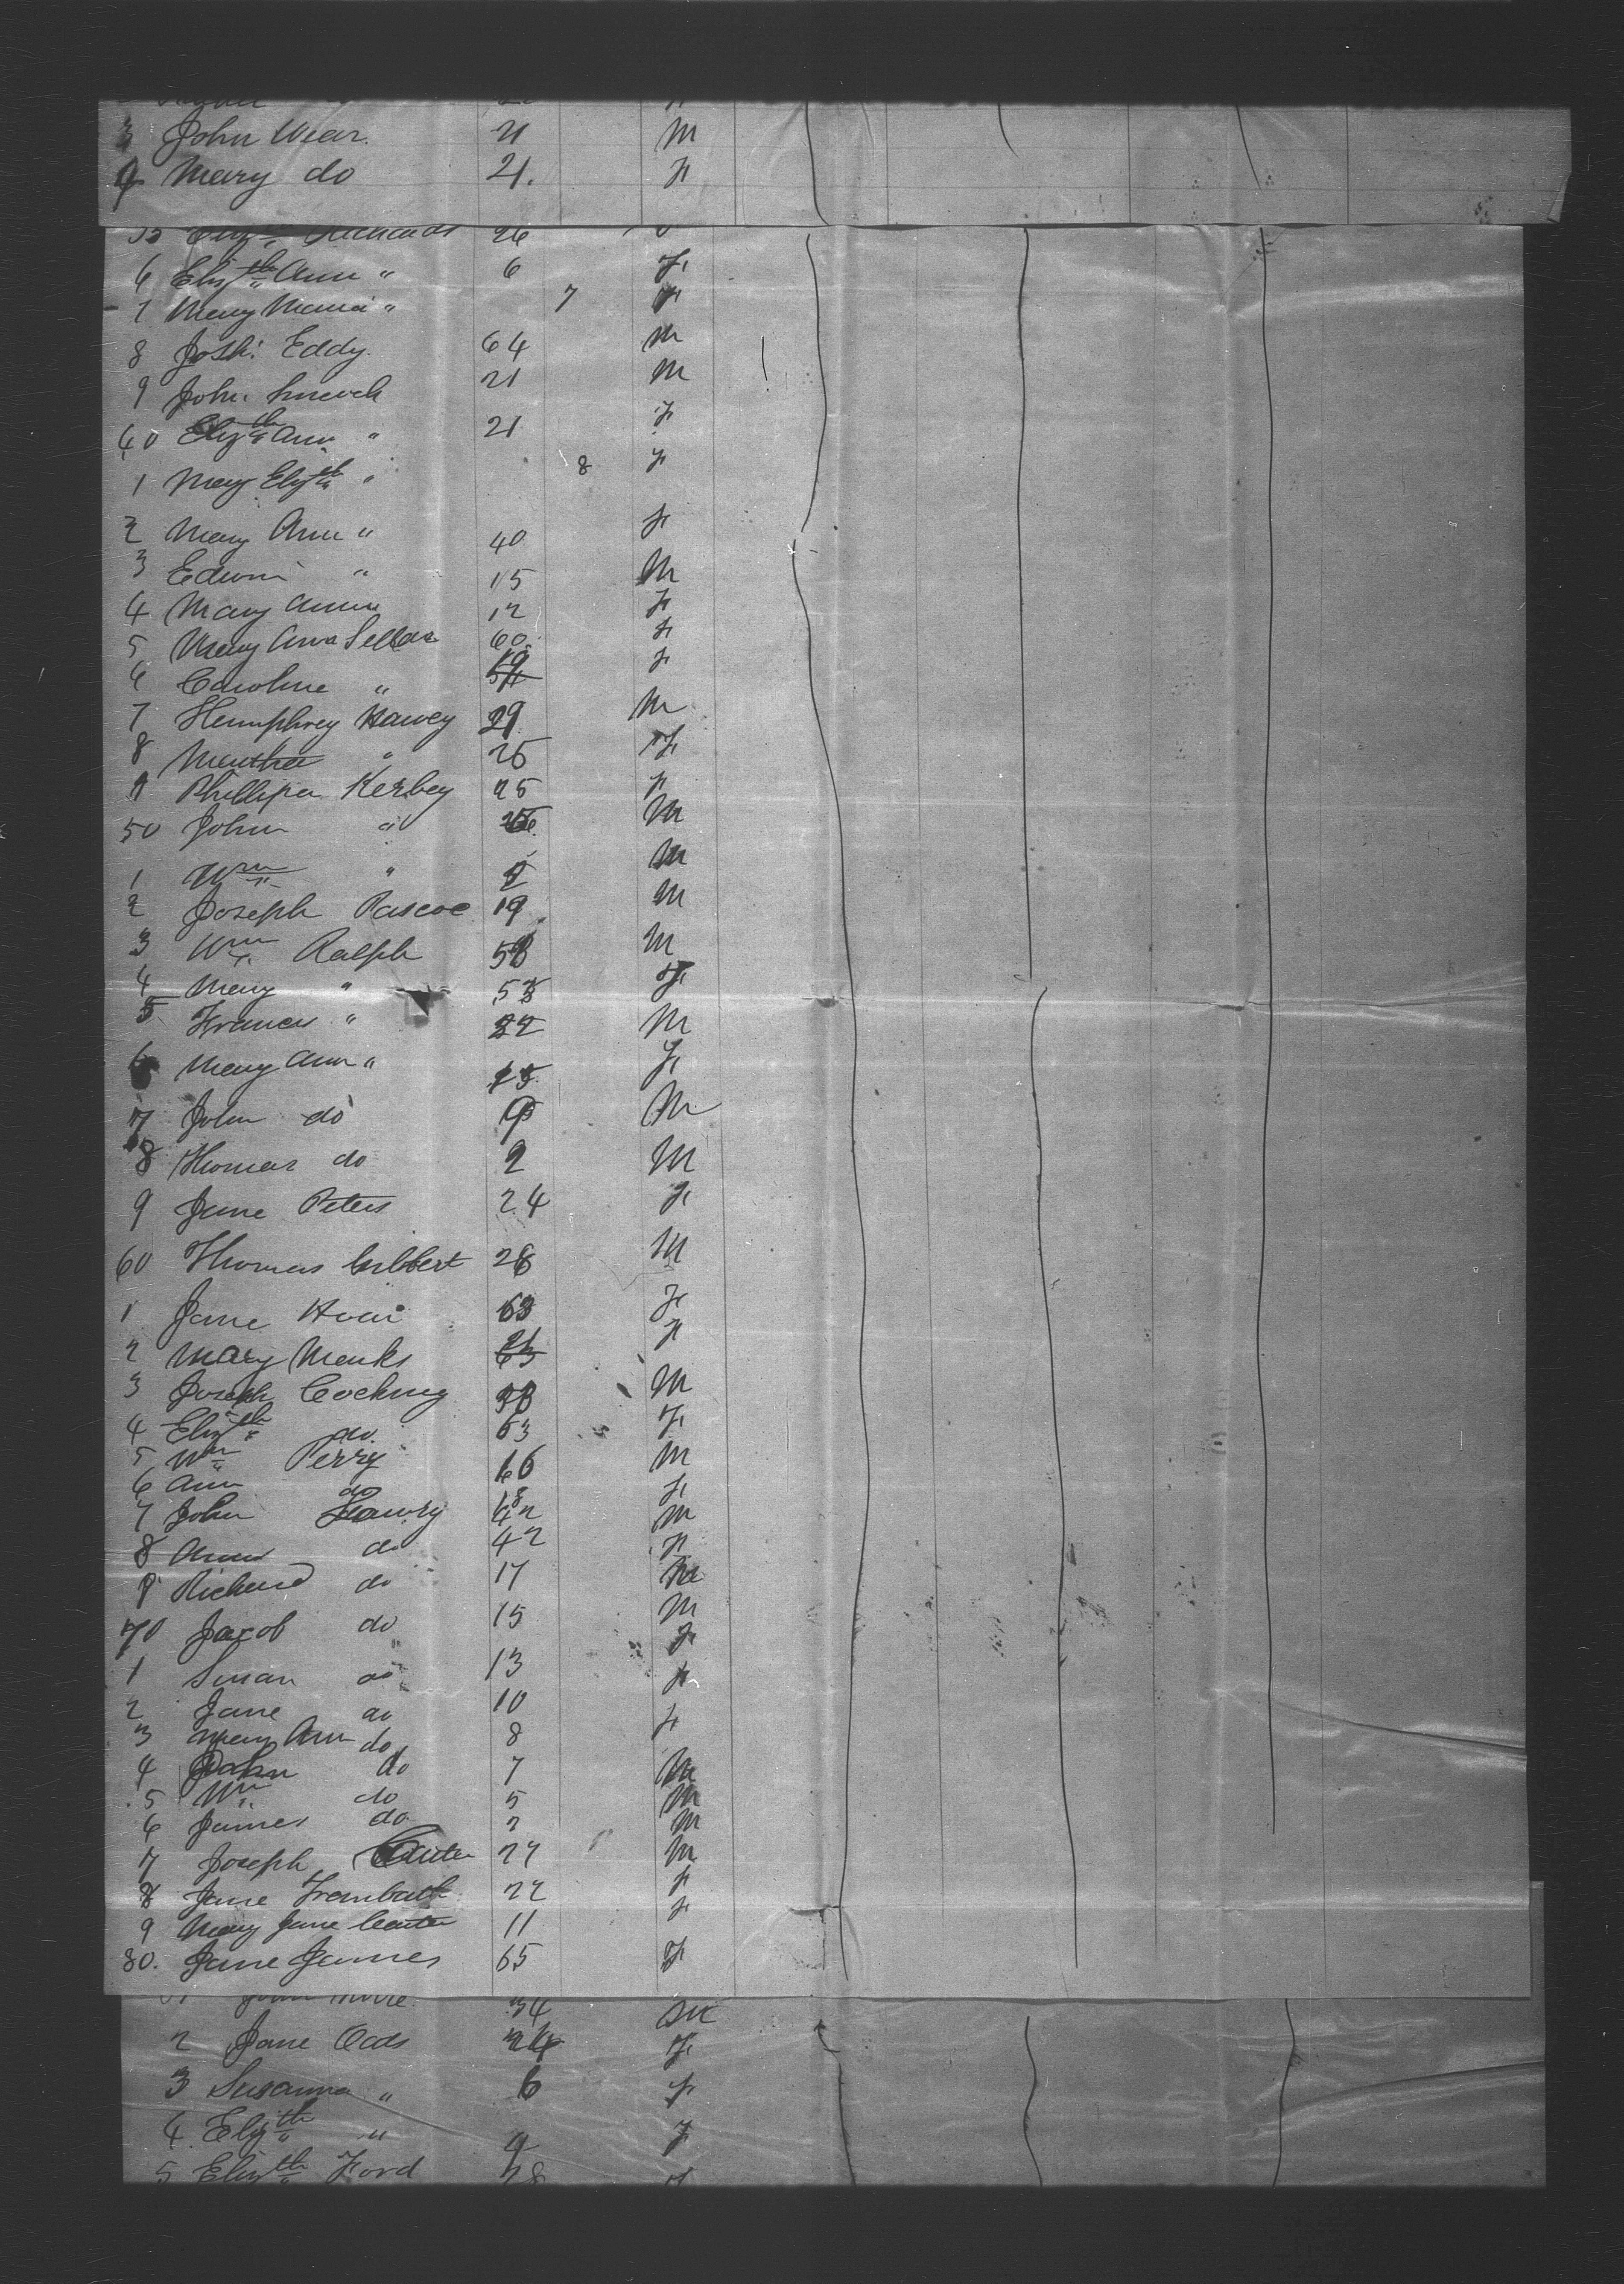 3 John Wear. 21 M
4 Mary do 21. F
35 Elizth Richards 26
6 Elizth Ann " 6 F
7 Mary Maria " 7 F
8 Josh. Eddy. 64 M
9 John 21 M
40 Elizth Ann " 21 F
1 Mary Elizth " 8 F
2 Mary Ann " 40 F
3 Edwin " 15 M
4 Mary Ann 12 F
5 Mary Ann Sellar 60 F
6 Caroline " 19 F
7 Humphrey Harvey 29 M
8 Martha " 25 F
9 Phillipa Kerbey 25 F
50 John " M
1 Wm " M
2 Joseph Pascoe 19 M
3 Wm Ralph 58 M
4 Mary " 53 F
5 Francis " 22 M
6 Mary Ann " 15 F
7 John do 9 M
8 Thomas do 2 M
9 Jane Peters 24 F
60 Thomas Gilbert 28 M
1 Jane 63 F
2 Mary Menks F
3 Joseph Cocking M
4 Elizth do. 63 F
5 Wm Perry 16 M
6 Ann do F
7 John Lawry 42 M
8 Ann do 42 F
9 Richard do 17 M
70 Jacob do 15 M
1 Susan do 13 F
2 Jane do 10 F
3 Mary Ann do 8 F
4 John do 7 M
5 Wm do 5 M
6 James do. 2 M
7 Joseph Carter 27 M
8 Jane Trembath 22 F
9 Mary Jane Carter 11 F
80. Jane James 65 F
34 M
2 Jane Oads 24 F
3 Susanna " 6 F
4 Elizth " F
5 Elizth Ford 28 F